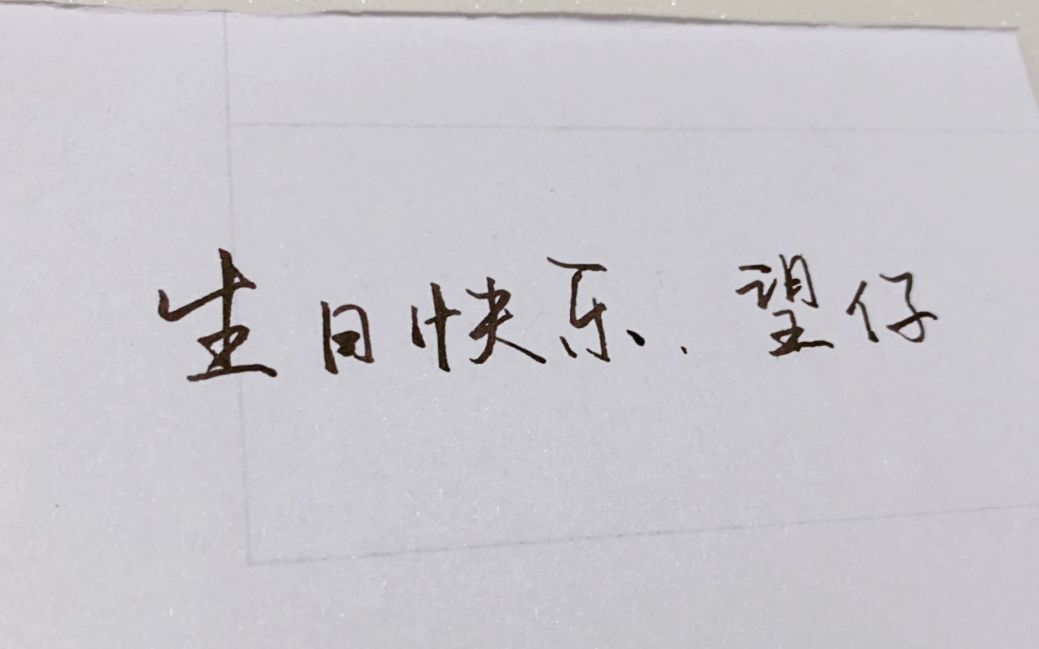 生日快乐.望仔